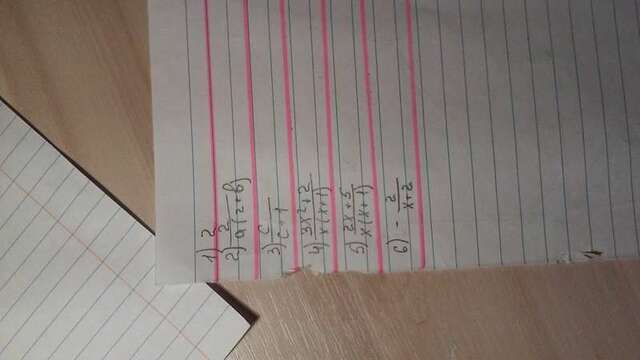 1) 2
2) 2/a(2+b)
3) c/c-1
4) 3x²+2/x(x+1)
5) 2x+5/x(x+1)
6) - 2/x+2